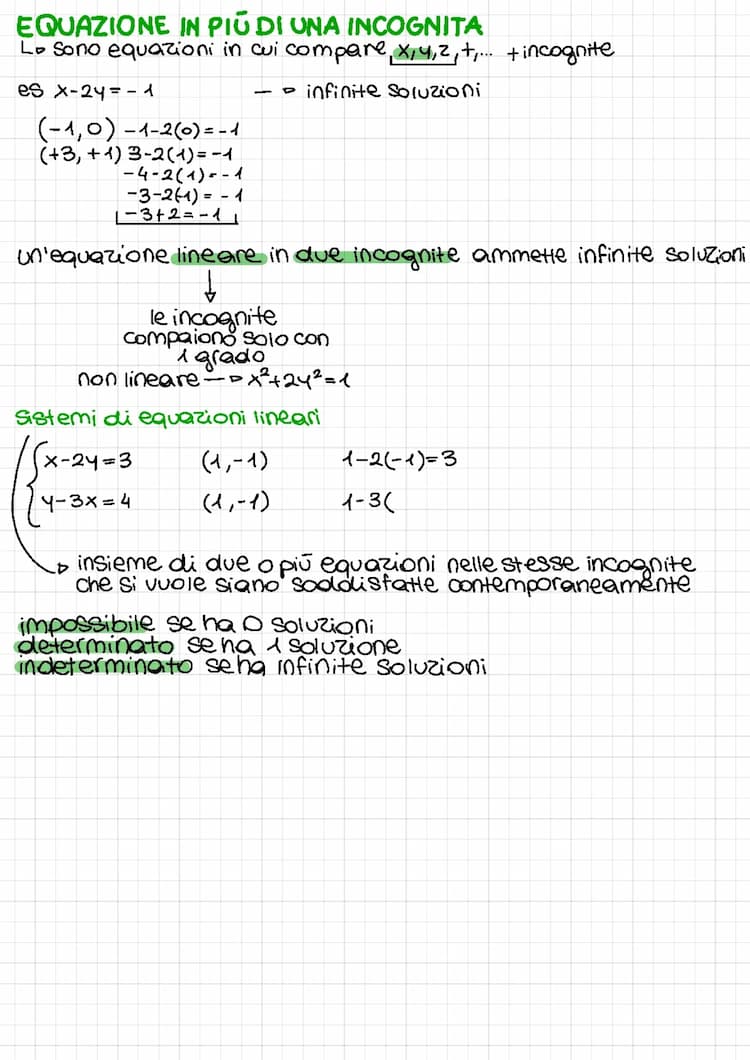 EQUAZIONE IN PIÙ DI UNA INCOGNITA
↳ sono equazioni in cui compare x,y,z,t,... + incognite
es x-2y=-1 → infinite soluzioni
(-1,0) -1-2(0)=-1
(+3,+1) 3-2(1)=-1
-4-2(1)=-1
-3-2(-1)=-1
-3+2=-1
un'equazione lineare in due incognite ammette infinite soluzioni
↓
le incognite
compaiono solo con
1 grado
non lineare → x²+2y²=1
Sistemi di equazioni lineari
{x-2y=3 (1,-1) 1-2(-1)=3
{y-3x=4 (1,-1) 1-3(
→ insieme di due o più equazioni nelle stesse incognite
che si vuole siano soddisfatte contemporaneamente
impossibile se ha 0 soluzioni
determinato se ha 1 soluzione
indeterminato se ha infinite soluzioni